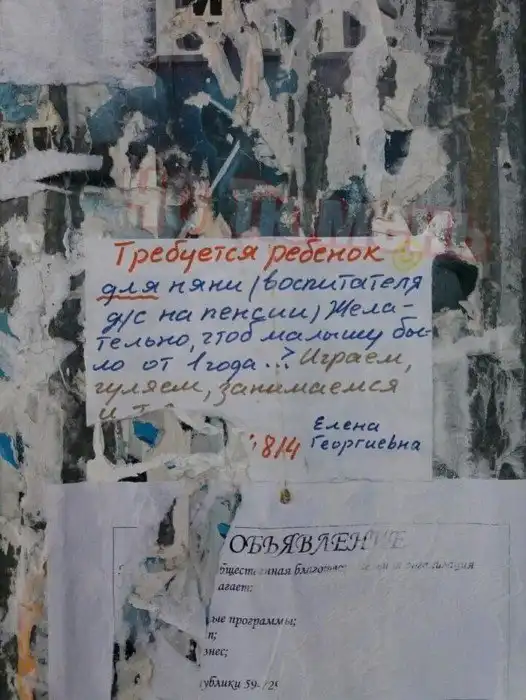 Требуется ребенок
для няни (воспитателя
д/с на пенсии) Жела-
тельно, чтоб малышу бы-
ло от 1 года..? Играем,
гуляем, занимаемся
и т
814
Елена
Георгиевна
ОБЪЯВЛЕНИЕ
бщественная
агает:
ые программы;
п;
знес;
ублики 59-